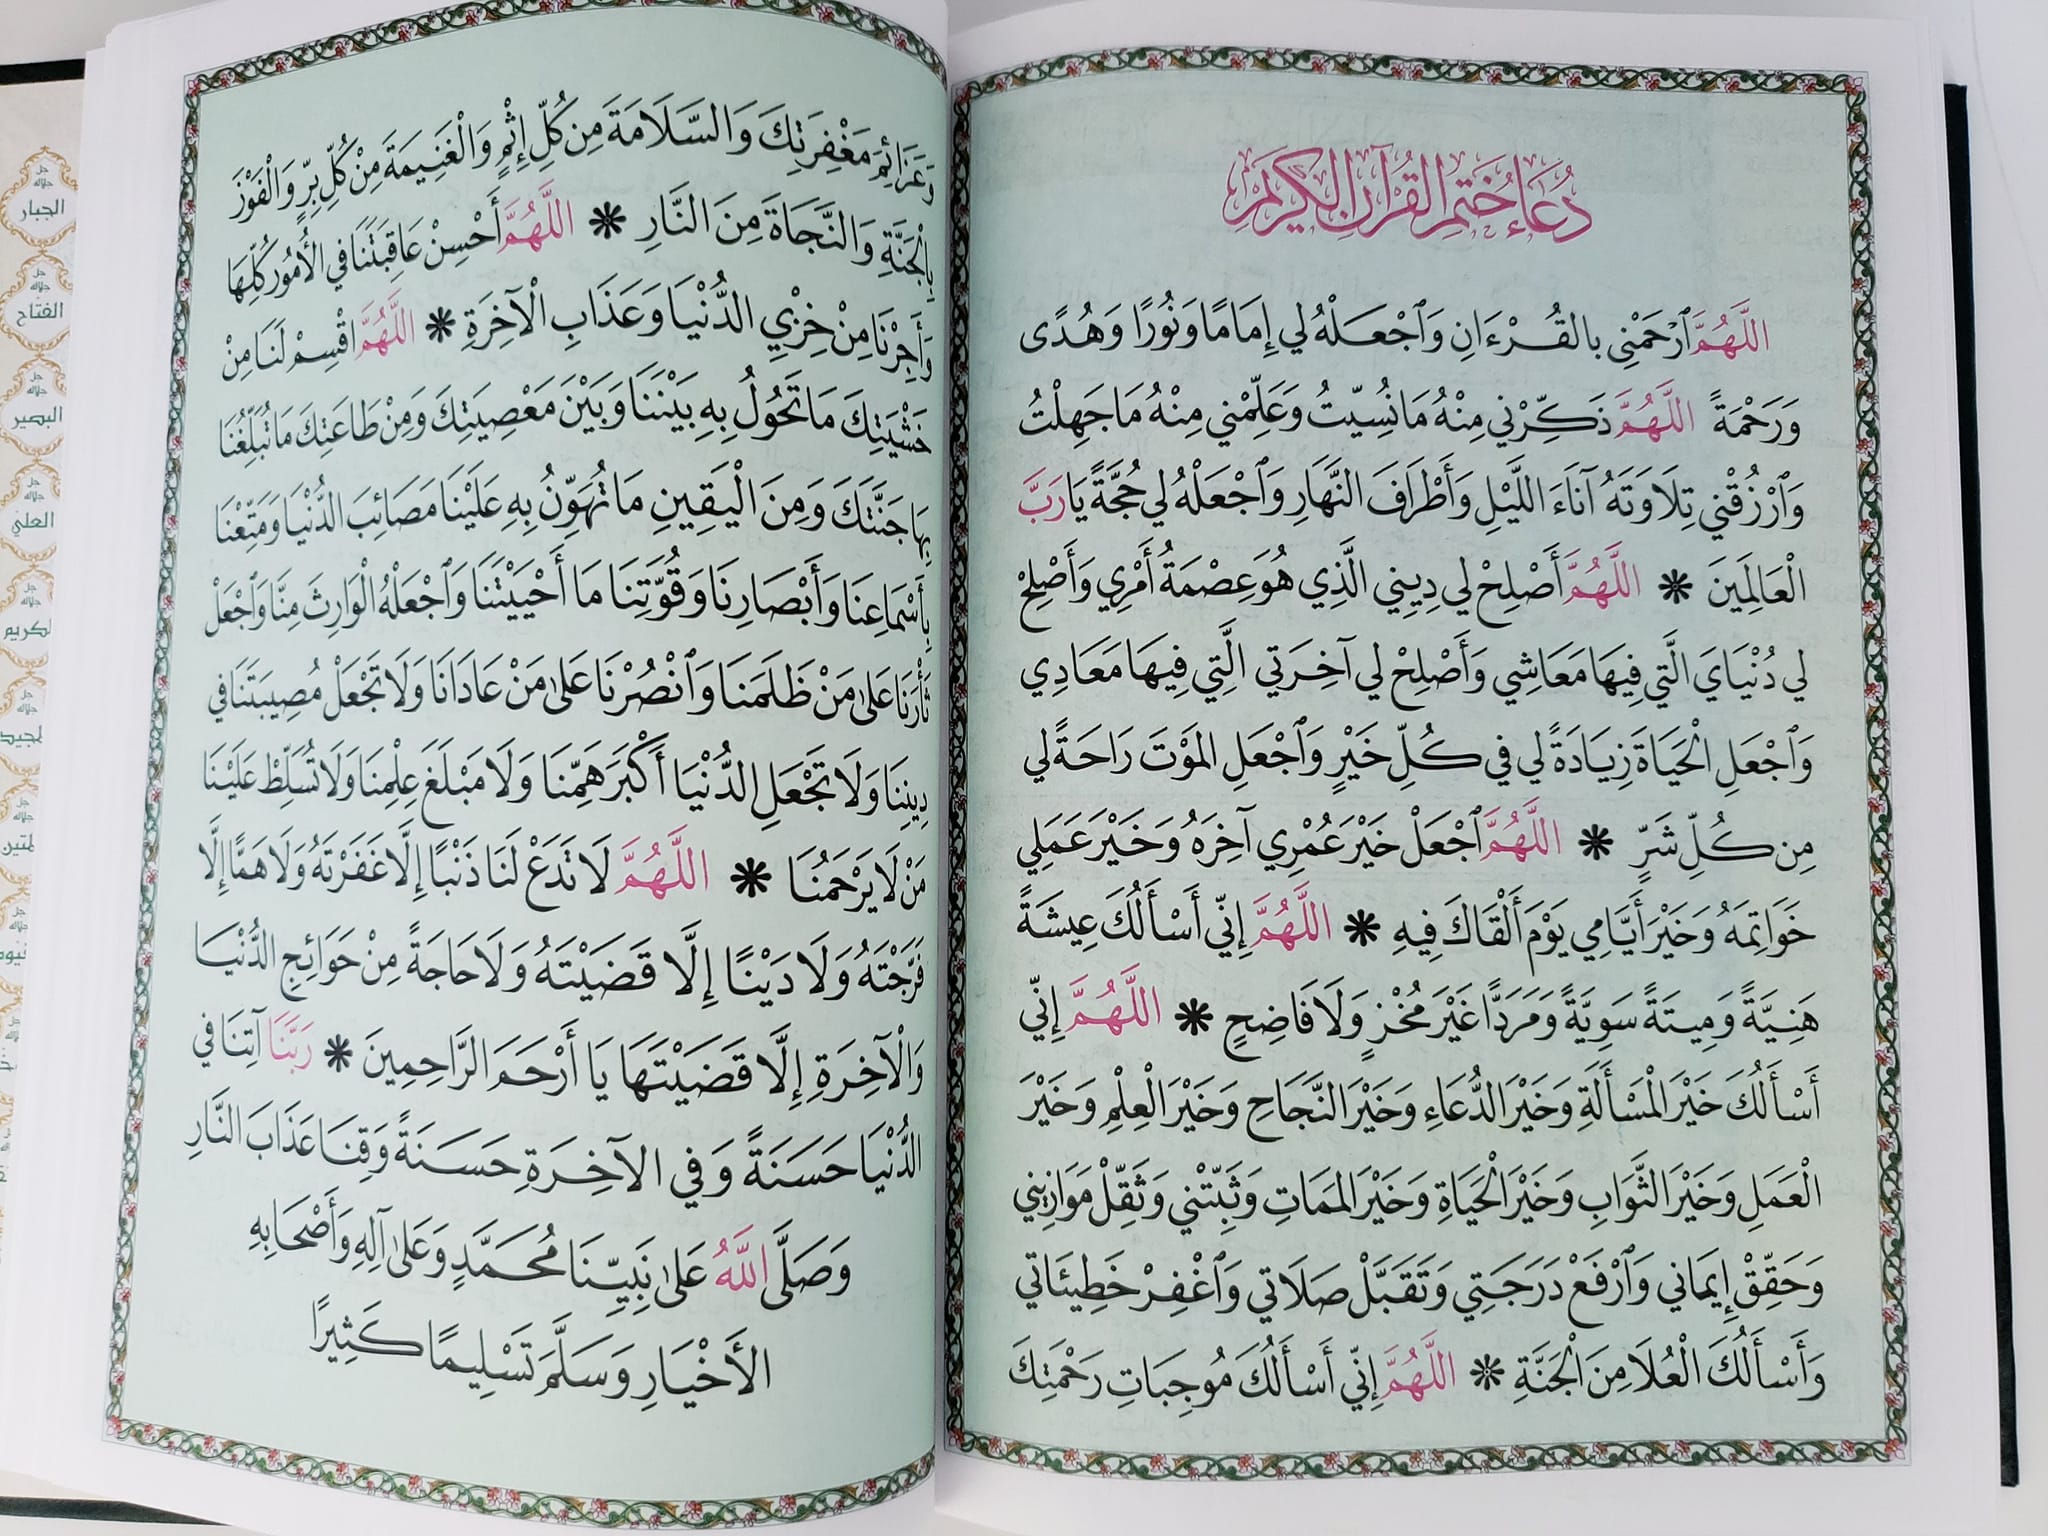 دُعَاءُ خَتْمِ الْقُرْآنِ الْكَرِيمِ
اللَّهُمَّ ٱرْحَمْنِي بِالقُرْءَانِ وَٱجْعَلْهُ لِي إِمَامًا وَنُورًا وَهُدًى
وَرَحْمَةً اللَّهُمَّ ذَكِّرْنِي مِنْهُ مَا نُسِّيتُ وَعَلِّمْنِي مِنْهُ مَا جَهِلْتُ
وَٱرْزُقْنِي تِلَاوَتَهُ آنَاءَ اللَّيْلِ وَأَطْرَافَ النَّهَارِ وَٱجْعَلْهُ لِي حُجَّةً يَا رَبَّ
الْعَالَمِينَ * اللَّهُمَّ أَصْلِحْ لِي دِينِي الَّذِي هُوَ عِصْمَةُ أَمْرِي وَأَصْلِحْ
لِي دُنْيَايَ الَّتِي فِيهَا مَعَاشِي وَأَصْلِحْ لِي آخِرَتِي الَّتِي فِيهَا مَعَادِي
وَٱجْعَلِ الْحَيَاةَ زِيَادَةً لِي فِي كُلِّ خَيْرٍ وَٱجْعَلِ المَوْتَ رَاحَةً لِي
مِن كُلِّ شَرٍّ * اللَّهُمَّ ٱجْعَلْ خَيْرَ عُمْرِي آخِرَهُ وَخَيْرَ عَمَلِي
خَوَاتِمَهُ وَخَيْرَ أَيَّامِي يَوْمَ أَلْقَاكَ فِيهِ * اللَّهُمَّ إِنِّي أَسْأَلُكَ عِيشَةً
هَنِيَّةً وَمِيتَةً سَوِيَّةً وَمَرَدًّا غَيْرَ مُخْزٍ وَلَا فَاضِحٍ * اللَّهُمَّ إِنِّي
أَسْأَلُكَ خَيْرَ الْمَسْأَلَةِ وَخَيْرَ الدُّعَاءِ وَخَيْرَ النَّجَاحِ وَخَيْرَ الْعِلْمِ وَخَيْرَ
الْعَمَلِ وَخَيْرَ الثَّوَابِ وَخَيْرَ الْحَيَاةِ وَخَيْرَ المَمَاتِ وَثَبِّتْنِي وَثَقِّلْ مَوَازِينِي
وَحَقِّقْ إِيمَانِي وَٱرْفَعْ دَرَجَتِي وَتَقَبَّلْ صَلَاتِي وَٱغْفِرْ خَطِيئَاتِي
وَأَسْأَلُكَ الْعُلَا مِنَ الْجَنَّةِ * اللَّهُمَّ إِنِّي أَسْأَلُكَ مُوجِبَاتِ رَحْمَتِكَ
وَعَزَائِمَ مَغْفِرَتِكَ وَالسَّلَامَةَ مِن كُلِّ إِثْمٍ وَالْغَنِيمَةَ مِنْ كُلِّ بِرٍّ وَالْفَوْزَ
بِالْجَنَّةِ وَالنَّجَاةَ مِنَ النَّارِ * اللَّهُمَّ أَحْسِنْ عَاقِبَتَنَا فِي الْأُمُورِ كُلِّهَا
وَأَجِرْنَا مِنْ خِزْيِ الدُّنْيَا وَعَذَابِ الْآخِرَةِ * اللَّهُمَّ اقْسِمْ لَنَا مِنْ
خَشْيَتِكَ مَا تَحُولُ بِهِ بَيْنَنَا وَبَيْنَ مَعْصِيَتِكَ وَمِنْ طَاعَتِكَ مَا تُبَلِّغُنَا
بِهَا جَنَّتَكَ وَمِنَ الْيَقِينِ مَا تُهَوِّنُ بِهِ عَلَيْنَا مَصَائِبَ الدُّنْيَا وَمَتِّعْنَا
بِأَسْمَاعِنَا وَأَبْصَارِنَا وَقُوَّتِنَا مَا أَحْيَيْتَنَا وَٱجْعَلْهُ الْوَارِثَ مِنَّا وَٱجْعَلْ
ثَأْرَنَا عَلَىٰ مَنْ ظَلَمَنَا وَٱنْصُرْنَا عَلَىٰ مَنْ عَادَانَا وَلَا تَجْعَلْ مُصِيبَتَنَا فِي
دِينِنَا وَلَا تَجْعَلِ الدُّنْيَا أَكْبَرَ هَمِّنَا وَلَا مَبْلَغَ عِلْمِنَا وَلَا تُسَلِّطْ عَلَيْنَا
مَنْ لَا يَرْحَمُنَا * اللَّهُمَّ لَا تَدَعْ لَنَا ذَنْبًا إِلَّا غَفَرْتَهُ وَلَا هَمًّا إِلَّا
فَرَّجْتَهُ وَلَا دَيْنًا إِلَّا قَضَيْتَهُ وَلَا حَاجَةً مِنْ حَوَائِجِ الدُّنْيَا
وَالْآخِرَةِ إِلَّا قَضَيْتَهَا يَا أَرْحَمَ الرَّاحِمِينَ * رَبَّنَا آتِنَا فِي
الدُّنْيَا حَسَنَةً وَفِي الآخِرَةِ حَسَنَةً وَقِنَا عَذَابَ النَّارِ
وَصَلَّى اللَّهُ عَلَىٰ نَبِيِّنَا مُحَمَّدٍ وَعَلَىٰ آلِهِ وَأَصْحَابِهِ
الأَخْيَارِ وَسَلَّمَ تَسْلِيمًا كَثِيرًا
جل جلاله
الجبار
جل جلاله
الفتاح
جل جلاله
البصير
جل جلاله
العلي
جل جلاله
جل جلاله
جل جلاله
جل جلاله